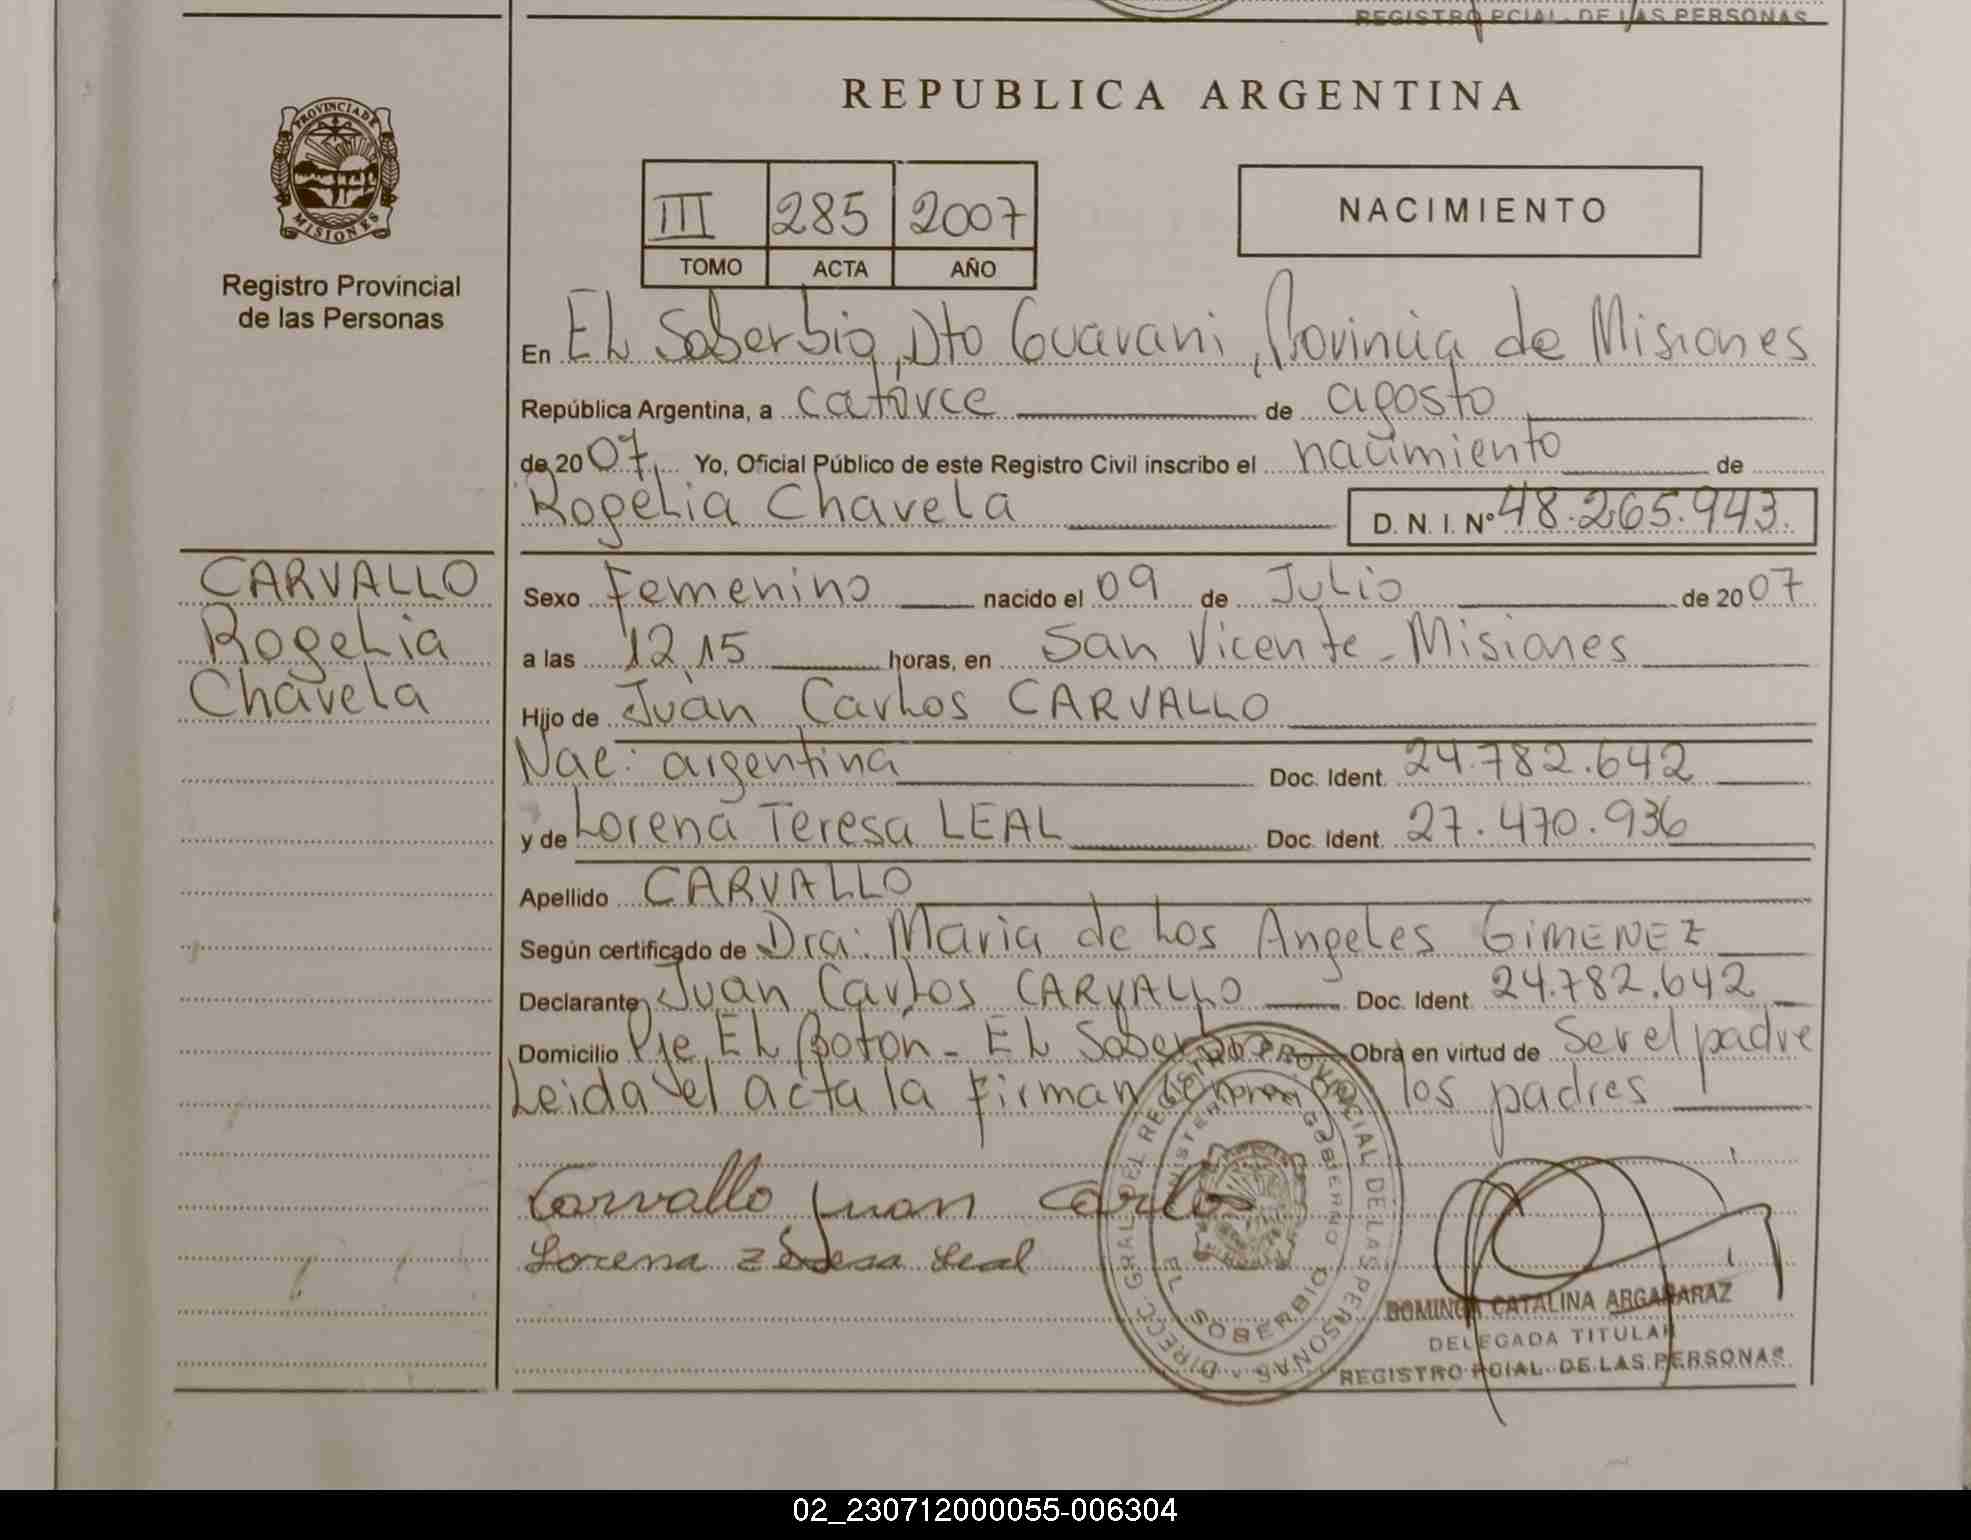 REGISTRO PCIAL. DE LAS PERSONAS
PROVINCIA DE
MISIONES
Registro Provincial
de las Personas
REPUBLICA ARGENTINA
III 285 2007
TOMO ACTA AÑO
NACIMIENTO
En EL Soberbio, Dto Guarani, Provincia de Misiones
República Argentina, a catorce de agosto
de 2007, Yo, Oficial Público de este Registro Civil inscribo el nacimiento de
Rogelia Chavela D. N. I. Nº 48.265.943.
CARVALLO
Rogelia
Chavela
Sexo Femenino nacido el 09 de Julio de 2007
a las 12,15 horas, en San Vicente - Misiones
Hijo de Juan Carlos CARVALLO
Nac: argentina Doc. Ident. 24.782.642
y de Lorena Teresa LEAL Doc. Ident. 27.470.936
Apellido CARVALLO
Según certificado de Dra: Maria de Los Angeles GIMENEZ
Declarante Juan Carlos CARVALLO Doc. Ident. 24.782.642
Domicilio Pje EL Boton - EL Soberbio Obra en virtud de Ser el padre
Leida el acta la firman los padres
Carvallo Juan Carlos
Lorena Teresa Leal
DIRECC. GRAL. DEL REGISTRO PROVINCIAL DE LAS PERSONAS
MINISTERIO GOBIERNO
EL SOBERBIO
DOMINGA CATALINA ARGAÑARAZ
DELEGADA TITULAR
REGISTRO PCIAL. DE LAS PERSONAS
02_230712000055-006304